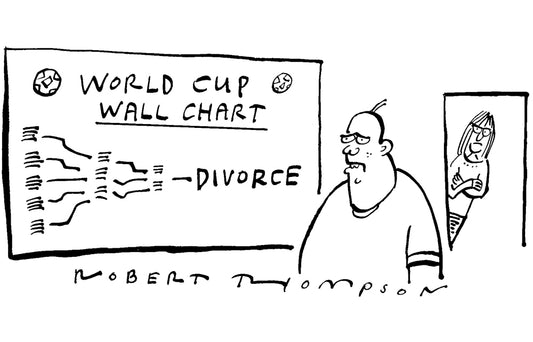 WORLD CUP
WALL CHART
DIVORCE
ROBERT THOMPSON